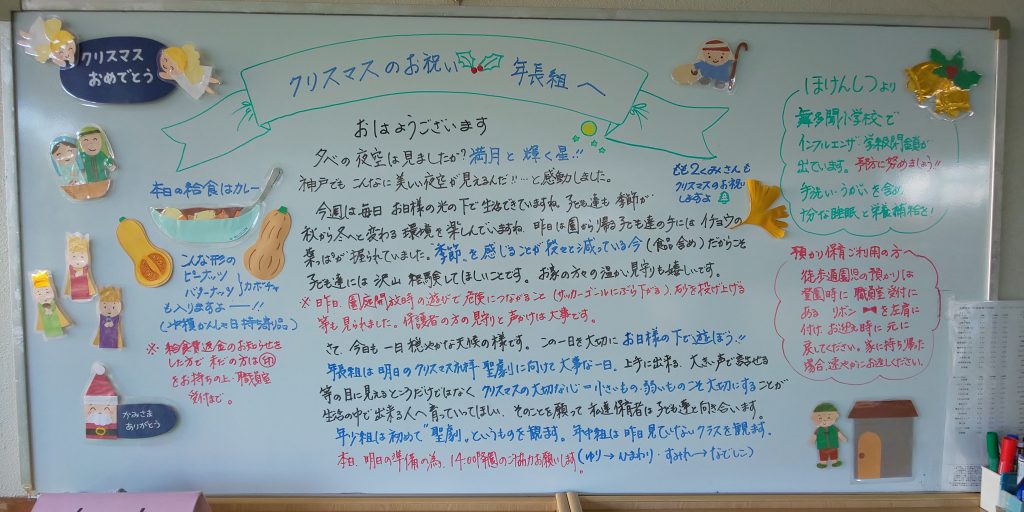 クリスマス
おめでとう
クリスマスのお祝い 年長組へ
おはようございます
夕べの夜空は見ましたか? 満月と輝く星!!
神戸でもこんなに美しい夜空が見えるんだ!!…と感動しました。
今週は毎日お日様の光の下で生活できていますね。子ども達も季節が
秋から冬へと変わる環境を楽しんでいますね。昨日は園から帰る子ども達の手にはイチョウの
葉っぱが握られていました。"季節"を感じることが段々と減っている今(食品含め)だからこそ
子ども達には沢山経験してほしいことです。お家の方々の温かい見守りも嬉しいです。
※昨日、園庭開放時の遊びで危険につながること(サッカーゴールにぶら下がる)、砂を投げ上げる
等も見られました。保護者の方の見守りと声かけは大事です。
さて、今日も一日穏やかな天候の様です。この一日を大切にお日様の下で遊ぼう!!
年長組は明日のクリスマス礼拝 聖劇に向けて大事な一日。上手に出来る、大きい声で言える
等の目に見えるところだけではなく クリスマスの大切な心=小さいもの、弱いものこそ大切にすることが
生活の中で出来る人へ育っていってほしい。そのことを願って私達保育者は子ども達と向き合います。
年少組は初めて"聖劇"というものを観ます。年中組は昨日見ていないクラスを観ます。
本日、明日の準備の為、14:00降園のご協力お願いします。(ゆり→ひまわり・すみれ→なでしこ)
もも2くみさんも
クリスマスのお祝い
しますよ
本日の給食はカレー
こんな形の
ピーナッツ
バターナッツ
カボチャ
も入りますよー!!
(収穫かんしゃ日持ち寄り品)
※給食費返金のお知らせを
した方で まだの方は印
をお持ちの上、職員室
受付まで。
かみさま
ありがとう
ほけんしつより
舞多聞小学校で
インフルエンザ・学級閉鎖が
出ています。予防に努めましょう!!
手洗い・うがいを含め、
十分な睡眠と栄養補給を!
預かり保育ご利用の方へ
徒歩通園児の預かりは
登園時に職員室受付に
ある リボン を左肩に
付け、お迎え時に
戻してください。家に持ち帰った
場合、速やかにお返しください。